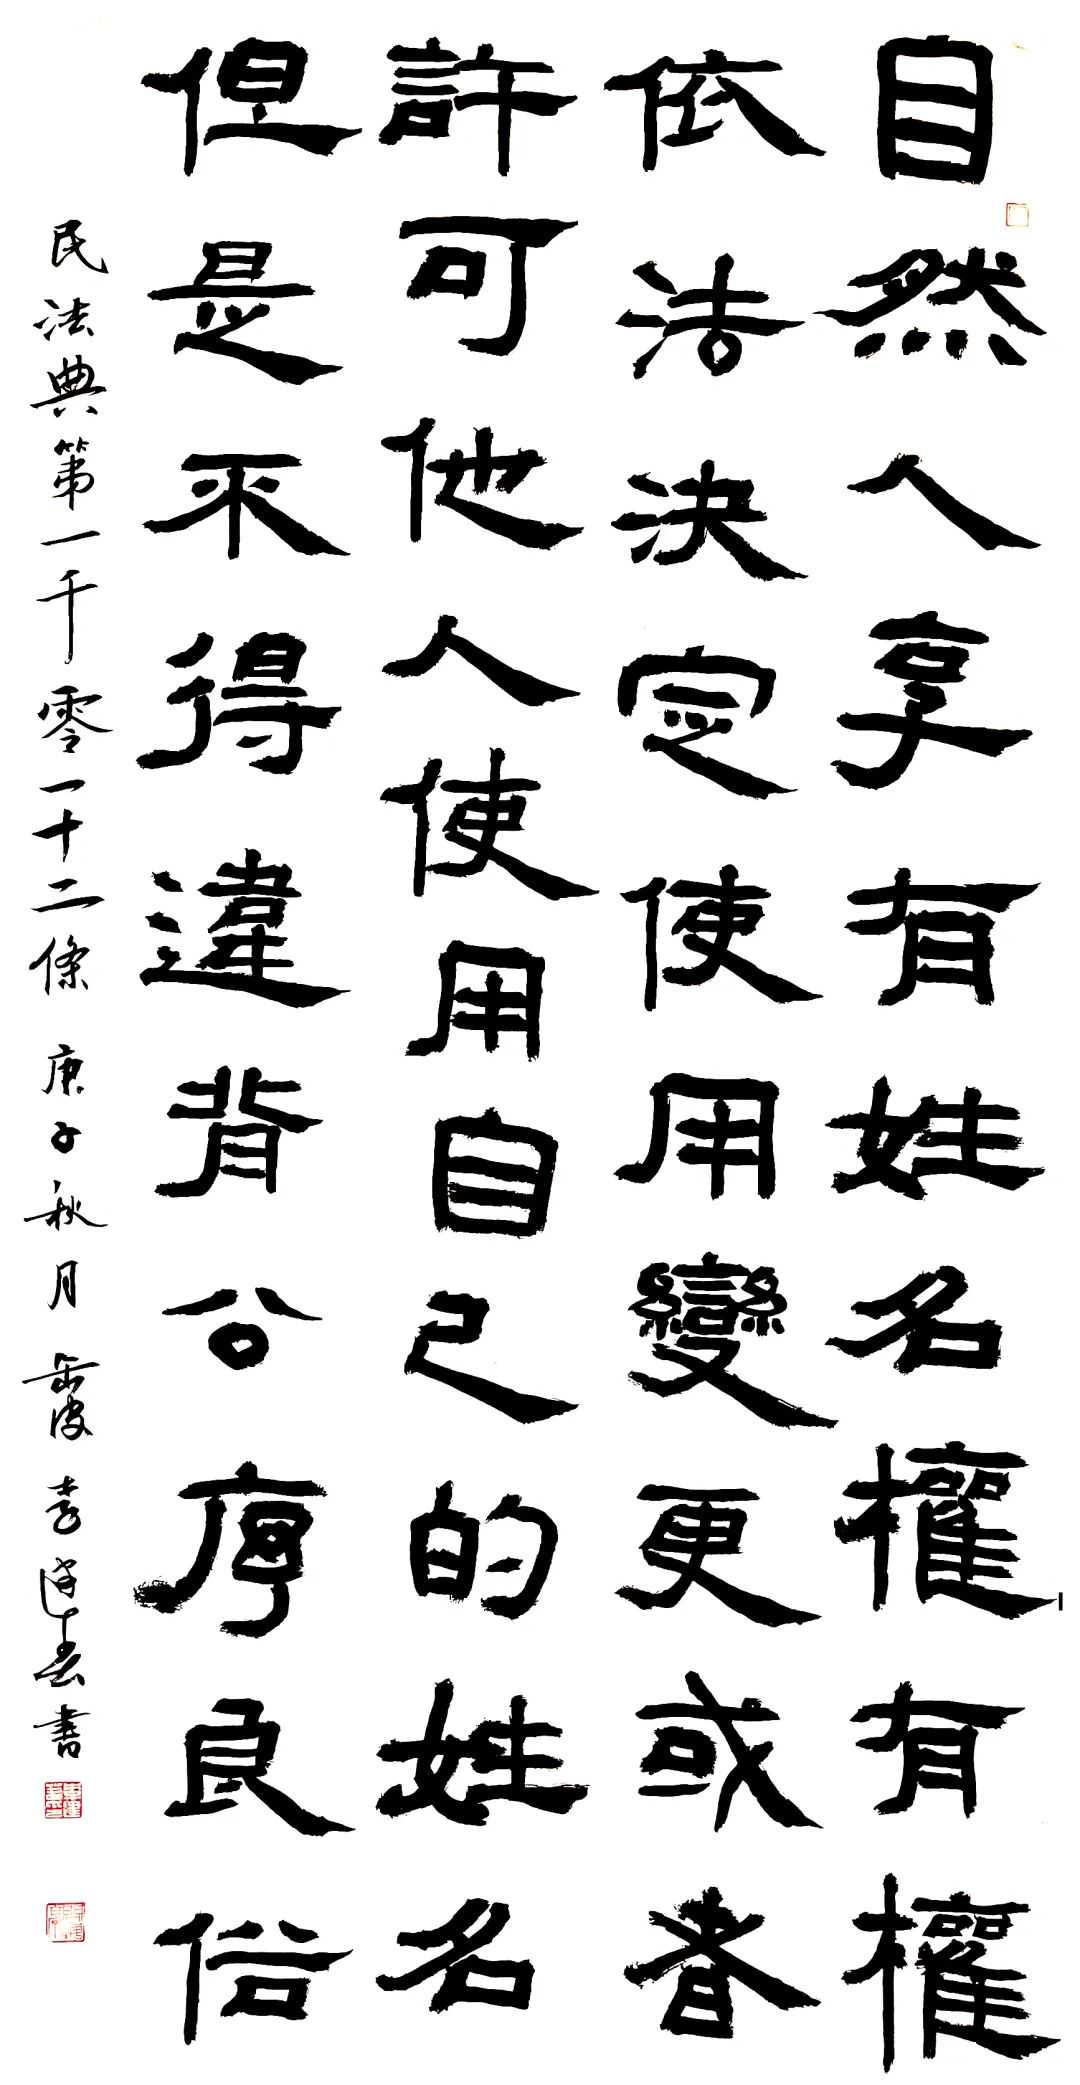 自然人享有姓名權有權
依法決定使用變更或者
許可他人使用自己的姓名
但是不得違背公序良俗
民法典第一千零一十二條 庚子秋月 書